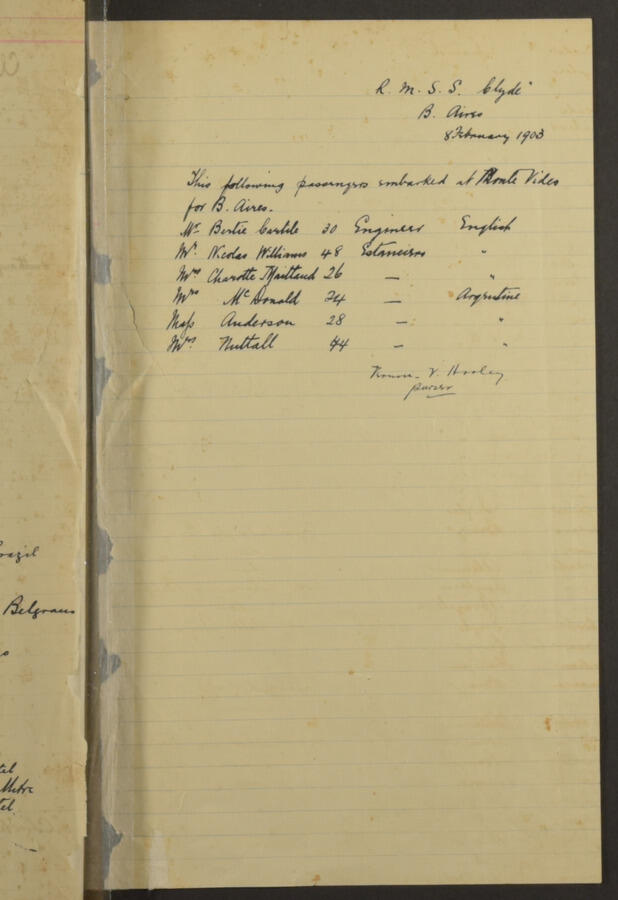 R. M. S. S. "Clyde"
B. Aires
8 February 1903
This following passengers embarked at Monte Video
for B. Aires.
Mr Bertie Carlile 30 Engineer English
Mr Nicolas Williams 48 Estanciero "
Mrs Charotte Maitland 26 — "
Mrs McDonald 24 — Argentine
Miss Anderson 28 — "
Mrs Nuttall 44 — "
V. Hooley
purser
Belgrano